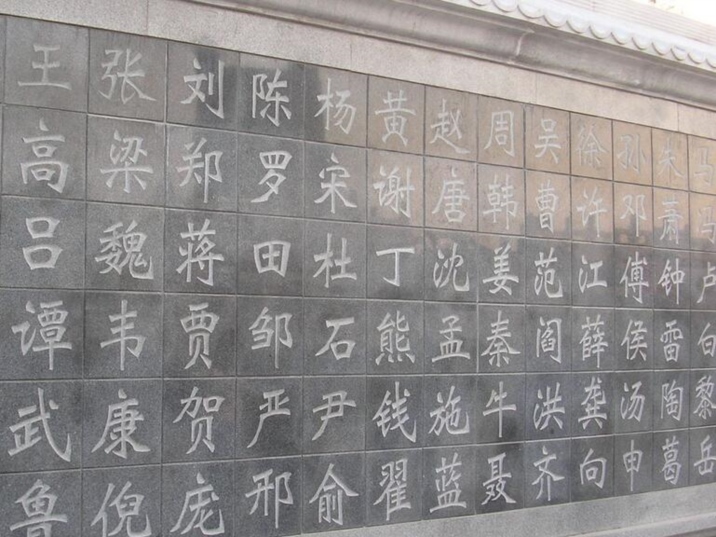 王 张 刘 陈 杨 黄 赵 周 吴 徐 孙 朱 马
高 梁 郑 罗 宋 谢 唐 韩 曹 许 邓 萧 马
吕 魏 蒋 田 杜 丁 沈 姜 范 江 傅 钟 卢
谭 韦 贾 邹 石 熊 孟 秦 阎 薛 侯 雷 白
武 康 贺 严 尹 钱 施 牛 洪 龚 汤 陶 黎
鲁 倪 庞 邢 俞 翟 蓝 聂 齐 向 申 葛 岳